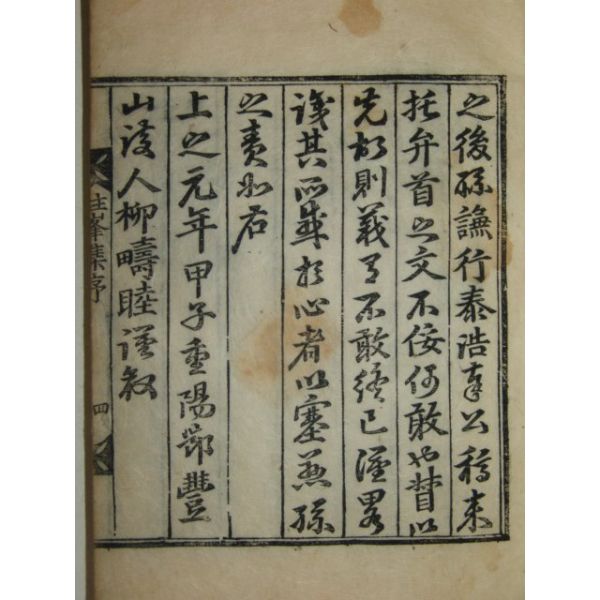 之後孫謙行泰浩奉公稿来
托弁首之文不佞何敢也以
先故則義有不敢終已謹畧
識其所感於心者以塞慈孫
之責如右
上之元年甲子重陽節豐
山後人柳疇睦謹叙
柱峯集序
四